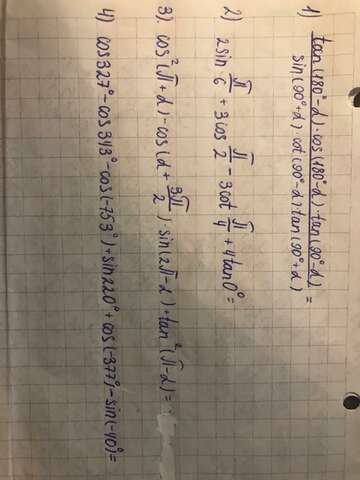 1) tan(180°-α)·cos(180°-α)·tan(90°-α) / sin(90°+α)·cot(90°-α)·tan(90°+α) =
2) 2sin π/6 + 3cos π/2 - 3cot π/4 + 4tan0° =
3) cos²(π+α)-cos(α+3π/2)·sin(2π-α)+tan²(π-α)=
4) cos327°-cos343°-cos(-753°)+sin220°+cos(-377°)-sin(-40°)=